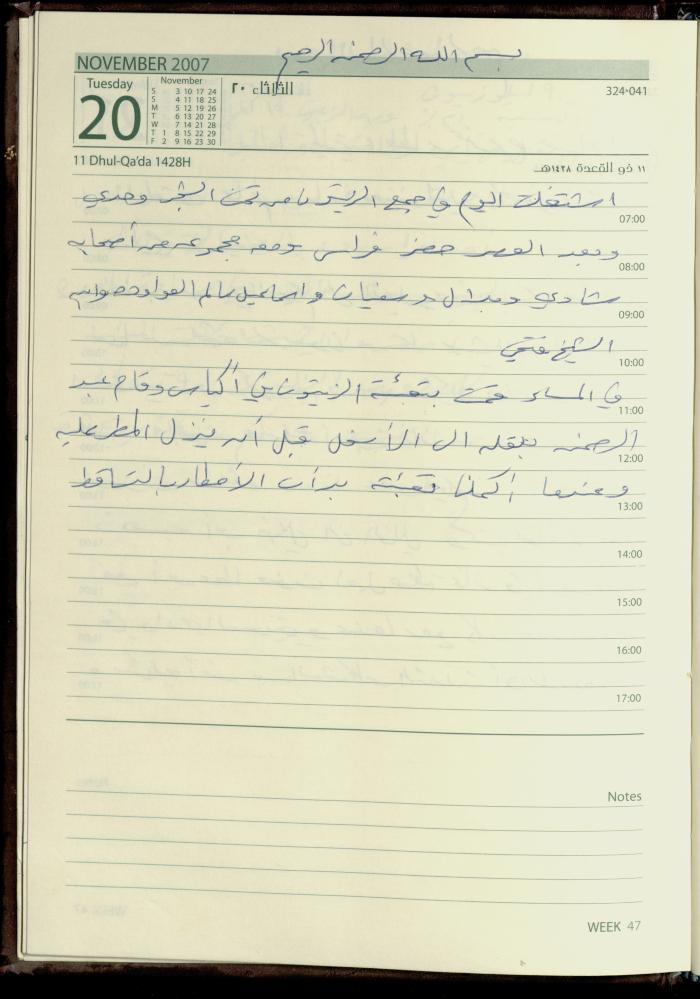 بسم الله الرحمن الرحيم
NOVEMBER 2007
Tuesday
20
November
S 3 10 17 24
S 4 11 18 25
M 5 12 19 26
T 6 13 20 27
W 7 14 21 28
T 1 8 15 22 29
F 2 9 16 23 30
الثلاثاء ٢٠
324-041
11 Dhul-Qa'da 1428H
١١ ذو القعدة ١٤٢٨هـ
اشتغلت اليوم في جمع الزيتون من تحت الشجر وحدي
07:00
وبعد العصر حضر فراس ومعه مجموعة من أصحابه
08:00
شادي وبلال وسفيان واسماعيل سالم
09:00
الشيخ فتحي
10:00
في المساء قمت بتعبئة الزيتون في أكياس وقام عبد
11:00
الرحمن بنقله الى الأسفل قبل أن ينزل المطر عليه
12:00
وعندما أكملنا تعبئته بدأت الأمطار بالتساقط
13:00
14:00
15:00
16:00
17:00
Notes
WEEK 47